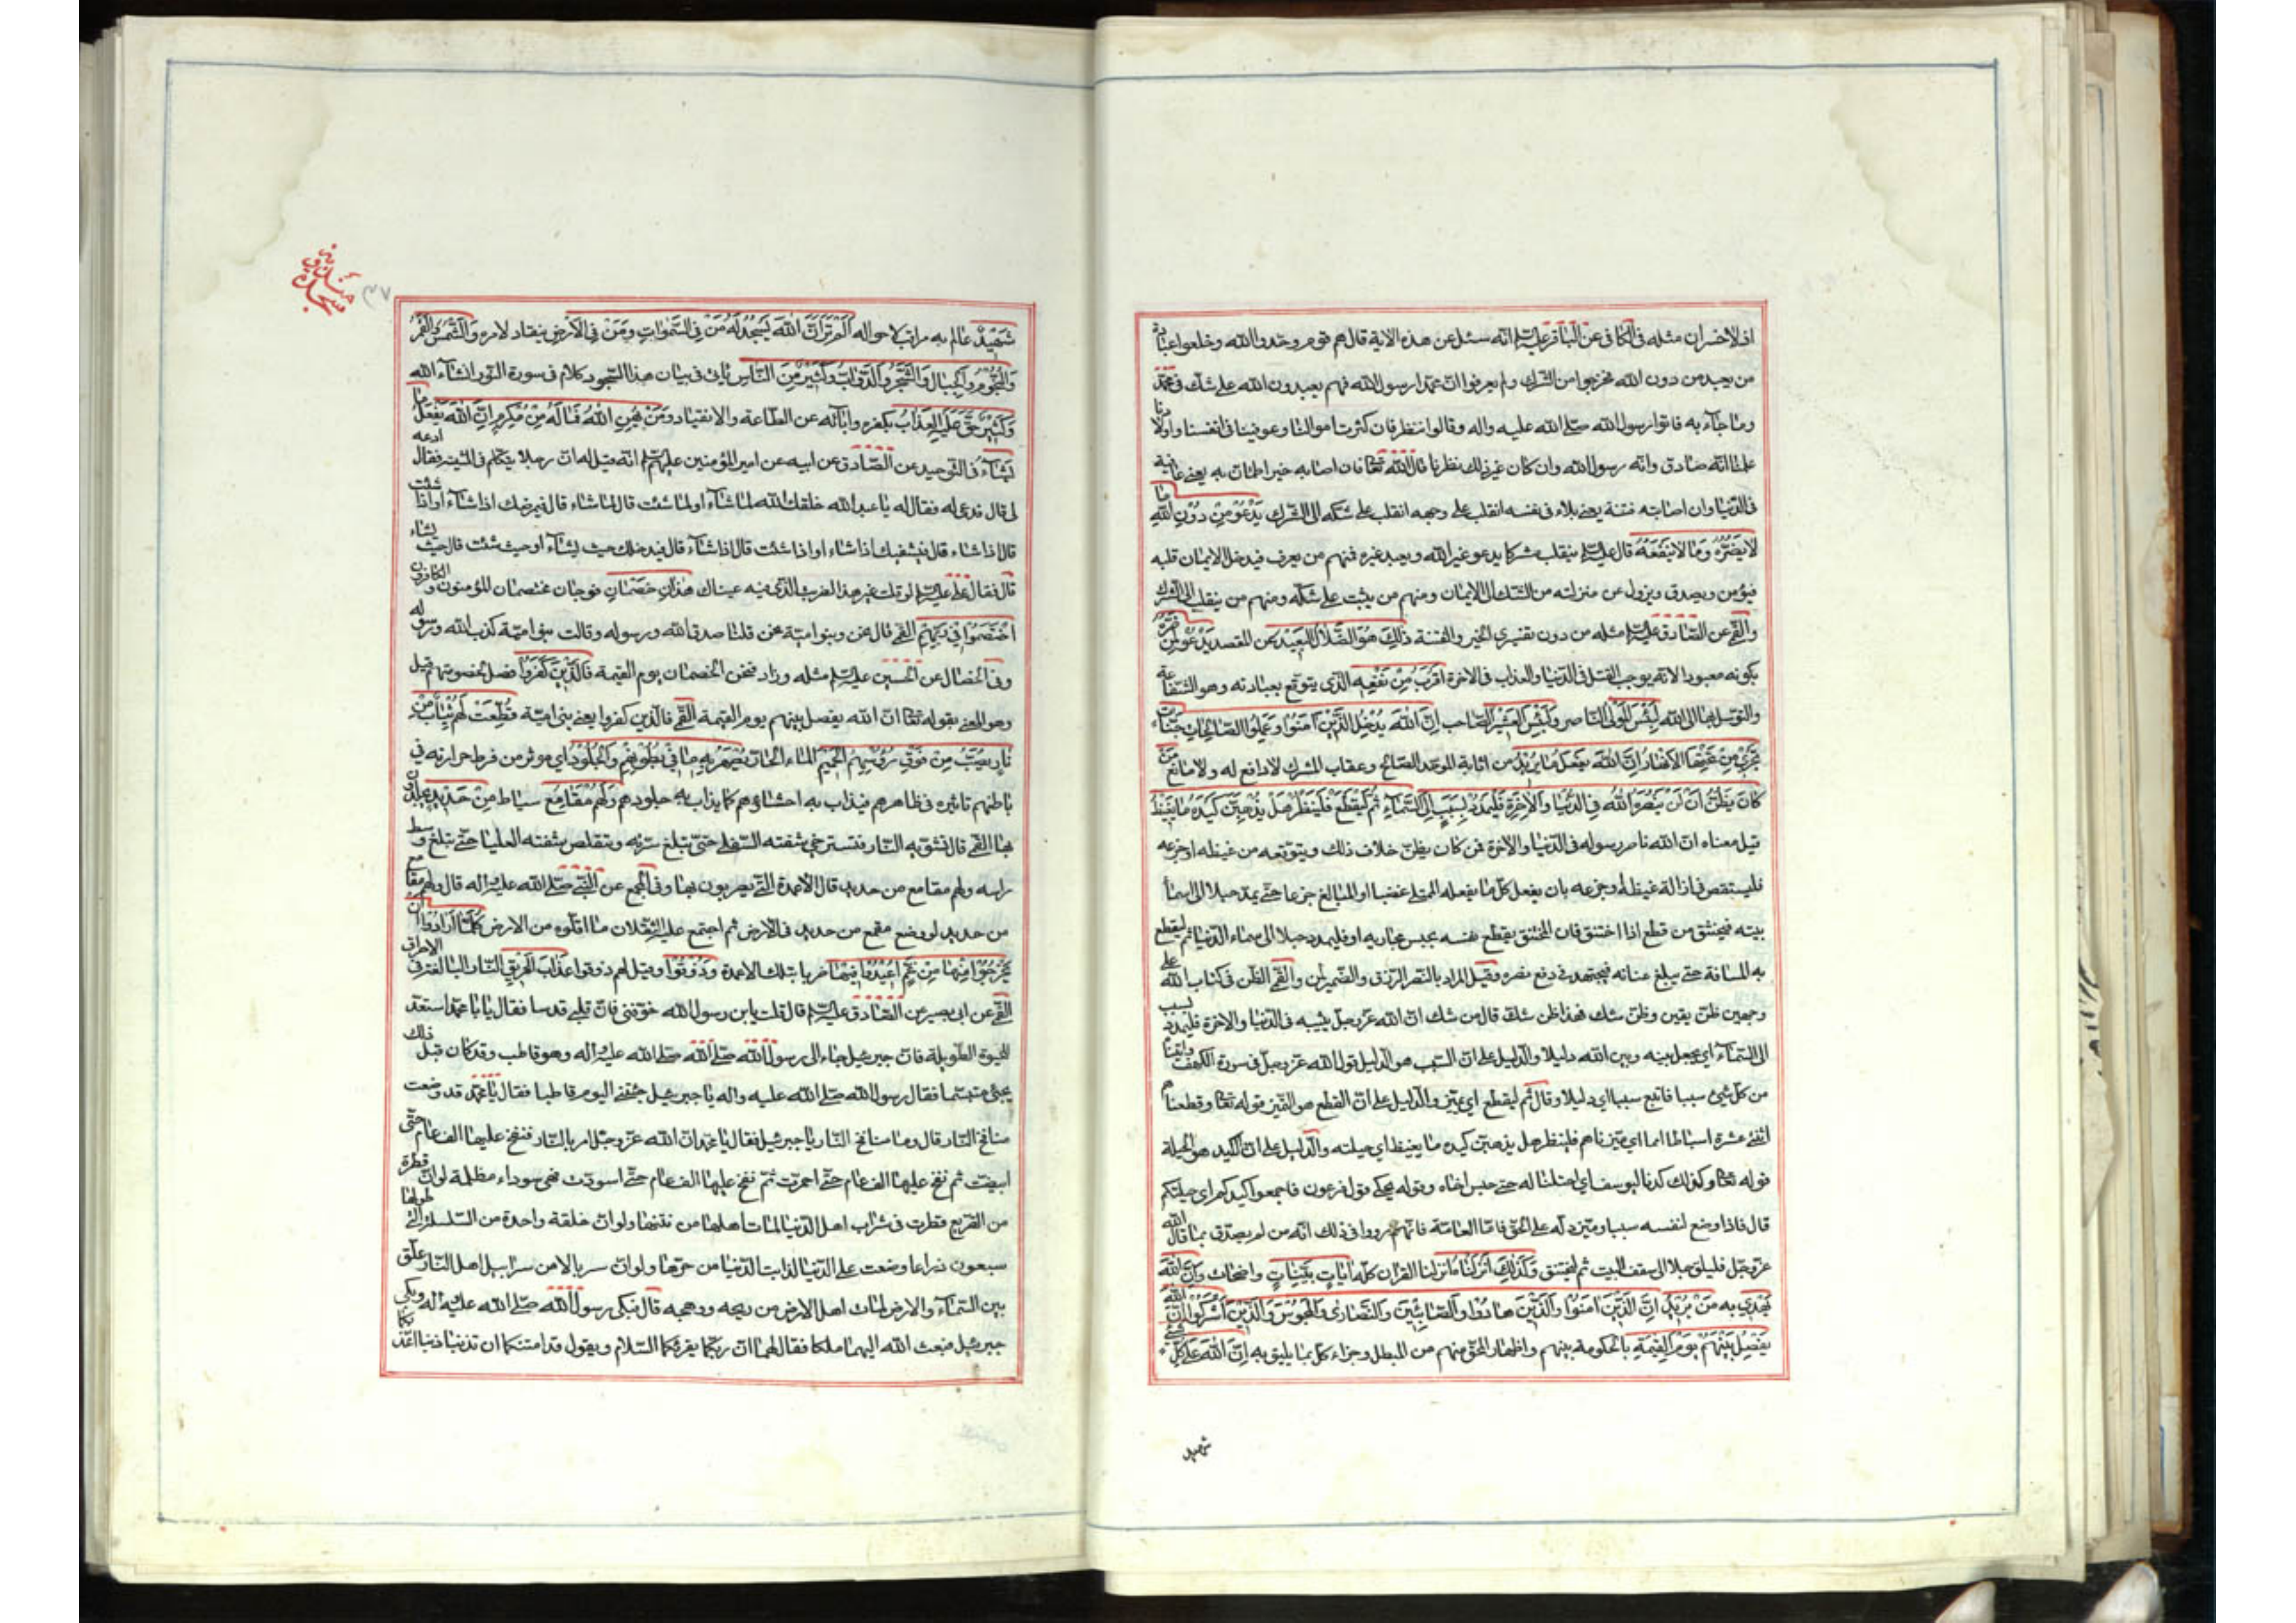 اذ لا خسران مثله فى الكافى عن الباقر عليه السلم انه سئل عن هذه الاية قال هم قوم وحدوا الله وخلعوا عبادة
من يعبد من دون الله فخرجوا من الشرك ولم يعرفوا ان محمدا رسول الله فهم يعبدون الله على شك فى محمد
وما جاء به فاتوا رسول الله صلى الله عليه واله وقالوا ننظر فان كثرت اموالنا وعوفينا فى انفسنا واولادنا
علمنا انه صادق وانه رسول الله وان كان غير ذلك نظرنا قال الله تعالى فان اصابه خير اطمان به يعنى عافية
فى الدنيا وان اصابته فتنة يعنى بلاء فى نفسه انقلب على وجهه انقلب على شكه الى الشرك يَدْعُو مِنْ دُونِ اللَّهِ مَا
لَا يَضُرُّهُ وَمَا لَا يَنْفَعُهُ قال عليه السلم ينقلب مشركا يدعو غير الله ويعبد غيره فمنهم من يعرف فيدخل الايمان قلبه
فيؤمن ويصدق ويزول عن منزلته من الشك الى الايمان ومنهم من يثبت على شكه ومنهم من ينقلب الى الشرك
والقمى عن الصادق عليه السلم مثله من دون تفسيرى الخير والفتنة ذلِكَ هُوَ الضَّلَالُ الْبَعِيدُ عن المقصد يَدْعُو لَمَنْ ضَرُّهُ
بكونه معبودا لانه يوجب القتل فى الدنيا والعذاب فى الاخرة اَقْرَبُ مِنْ نَفْعِهِ الذى يتوقع بعبادته وهو الشفاعة
والتوسل بها الى الله لَبِئْسَ الْمَوْلَى الناصر وَلَبِئْسَ الْعَشِيرُ الصاحب اِنَّ اللَّهَ يُدْخِلُ الَّذِينَ آمَنُوا وَعَمِلُوا الصَّالِحَاتِ جَنَّاتٍ
تَجْرِي مِنْ تَحْتِهَا الْاَنْهَارُ اِنَّ اللَّهَ يَفْعَلُ مَا يُرِيدُ من اثابة الموحد الصالح وعقاب المشرك لا دافع له ولا مانع مَنْ
كَانَ يَظُنُّ اَنْ لَنْ يَنْصُرَهُ اللَّهُ فِي الدُّنْيَا وَالْآخِرَةِ فَلْيَمْدُدْ بِسَبَبٍ اِلَى السَّمَاءِ ثُمَّ لْيَقْطَعْ فَلْيَنْظُرْ هَلْ يُذْهِبَنَّ كَيْدُهُ مَا يَغِيظُ
قيل معناه ان الله ناصر رسوله فى الدنيا والاخرة فمن كان يظن خلاف ذلك ويتوقعه من غيظه او جزعه
فليستقص فى ازالة غيظه او جزعه بان يفعل كل ما يفعله الممتلى غضبا او المبالغ جزعا حتى يمد حبلا الى اسماء
بيته فيختنق من قطع اذا اختنق فان المختنق يقطع نفسه بحبس مجاريه او فليمدد حبلا الى سماء الدنيا ثم ليقطع
به المسافة حتى يبلغ عنانه فيجتهد فى دفع نصره وقيل المراد بالنصر الرزق والضمير لمن والقمى الظن فى كتاب الله على
وجهين ظن يقين وظن شك فهذا ظن شك قال من شك ان الله عز وجل يثيبه فى الدنيا والاخرة فليمدد بسبب
الى السماء اى يجعل بينه وبين الله دليلا والدليل على ان السبب هو الدليل قول الله عز وجل فى سورة الكهف واتيناه
من كل شئ سببا فاتبع سببا اى دليلا وقال ثم ليقطع اى يميز والدليل على ان القطع هو التميز قوله تعالى وقطعناهم
اثنتى عشرة اسباطا امما اى ميزناهم فلينظر هل يذهبن كيده ما يغيظ اى حيلته والدليل على ان الكيد هو الحيلة
قوله تعالى وكذلك كدنا ليوسف اى احتلنا له حتى حبس اخاه وقوله يحكى قول فرعون فاجمعوا كيدكم اى حيلتكم
قال فاذا وضع لنفسه سببا وميز دله على الحق فاما العامة فانهم رووا فى ذلك انه من لم يصدق بما قال الله
عز وجل فليلق حبلا الى سقف البيت ثم ليختنق وَكَذَلِكَ اَنْزَلْنَاهُ انزلنا القران كله آيَاتٍ بَيِّنَاتٍ واضحات وَاَنَّ اللَّهَ
يَهْدِي به مَنْ يُرِيدُ اِنَّ الَّذِينَ آمَنُوا وَالَّذِينَ هَادُوا وَالصَّابِئِينَ وَالنَّصَارَى وَالْمَجُوسَ وَالَّذِينَ اَشْرَكُوا اِنَّ اللَّهَ
يَفْصِلُ بَيْنَهُمْ يَوْمَ الْقِيمَةِ بالحكومة بينهم واظهار المحق منهم من المبطل وجزاء كل بما يليق به اِنَّ اللَّهَ عَلَى كُلِّ شَيْءٍ
شهيد
شَهِيدٌ عالم به مراقب لاحواله اَلَمْ تَرَ اَنَّ اللَّهَ يَسْجُدُ لَهُ مَنْ فِي السَّمَوَاتِ وَمَنْ فِي الْاَرْضِ ينقاد لامره وَالشَّمْسُ وَالْقَمَرُ
وَالنُّجُومُ وَالْجِبَالُ وَالشَّجَرُ وَالدَّوَابُّ وَكَثِيرٌ مِنَ النَّاسِ ياتى فى بيان هذا السجود كلام فى سورة النور انشاء الله
وَكَثِيرٌ حَقَّ عَلَيْهِ الْعَذَابُ بكفره وابائه عن الطاعة والانقياد وَمَنْ يُهِنِ اللَّهُ فَمَا لَهُ مِنْ مُكْرِمٍ اِنَّ اللَّهَ يَفْعَلُ مَا
يَشَاءُ فى التوحيد عن الصادق عن ابيه عن امير المؤمنين عليهم السلم انه قيل له ان رجلا يتكلم فى المشية فقال ادعه
لى قال فدعى له فقال له يا عبد الله خلقك الله لما شاء او لما شئت قال لما شاء قال فيمرضك اذا شاء او اذا شئت
قال اذا شاء قال فيشفيك اذا شاء او اذا شئت قال اذا شاء قال فيدخلك حيث يشاء او حيث شئت قال حيث يشاء
قال فقال على عليه السلم له لو قلت غير هذا لضربت الذى فيه عيناك هَذَانِ خَصْمَانِ فوجان مختصمان المؤمنون والكافرون
اخْتَصَمُوا فِي رَبِّهِمْ القمى قال نحن وبنو امية نحن قلنا صدق الله ورسوله وقالت بنو امية كذب الله ورسوله
وفى الخصال عن الحسين عليه السلم مثله وزاد فنحن الخصمان يوم القيمة فَالَّذِينَ كَفَرُوا فصل لخصومتهم قيل
وهو المعنى بقوله تعالى ان الله يفصل بينهم يوم القيمة القمى فالذين كفروا يعنى بنى امية قُطِّعَتْ لَهُمْ ثِيَابٌ مِنْ
نَارٍ يُصَبُّ مِنْ فَوْقِ رُؤُسِهِمُ الْحَمِيمُ الماء الحار يُصْهَرُ بِهِ مَا فِي بُطُونِهِمْ وَالْجُلُودُ اى يؤثر من فرط حرارته فى
باطنهم تاثيره فى ظاهرهم فيذاب به احشاؤهم كما يذاب به جلودهم وَلَهُمْ مَقَامِعُ سياط مِنْ حَدِيدٍ يجلدون
بها القمى قال تشويه النار فتسترخى شفته السفلى حتى تبلغ سرته وتتقلص شفته العليا حتى تبلغ وسط
راسه ولهم مقامع من حديد قال الاعمدة التى يضربون بها وفى المجمع عن النبى صلى الله عليه واله قال ولهم مقامع
من حديد لو وضع مقمع من حديد فى الارض ثم اجتمع عليه الثقلان ما اقلوه من الارض كُلَّمَا اَرَادُوا اَنْ
يَخْرُجُوا مِنْهَا مِنْ غَمٍّ اُعِيدُوا فِيهَا ضربا بتلك الاعمدة وَذُوقُوا وقيل لهم ذوقوا عَذَابَ الْحَرِيقِ النار البالغة فى الاحراق
القمى عن ابى بصير عن الصادق عليه السلم قال قلت يابن رسول الله خوفنى فان قلبى قد قسا فقال يا با محمد استعد
للحيوة الطويلة فان جبرئيل جاء الى رسول الله صلى الله عليه واله وهو قاطب وقد كان قبل ذلك
يجئ متبسما فقال رسول الله صلى الله عليه واله يا جبرئيل جئتنى اليوم قاطبا فقال يا محمد قد وضعت
منافخ النار قال وما منافخ النار يا جبرئيل فقال يا محمد ان الله عز وجل امر بالنار فنفخ عليها الف عام حتى
ابيضت ثم نفخ عليها الف عام حتى احمرت ثم نفخ عليها الف عام حتى اسودت فهى سوداء مظلمة لو ان قطرة
من الضريع قطرت فى شراب اهل الدنيا لمات اهلها من نتنها ولو ان حلقة واحدة من السلسلة التى طولها
سبعون ذراعا وضعت على الدنيا لذابت الدنيا من حرها ولو ان سربالا من سرابيل اهل النار علق
بين السماء والارض لمات اهل الارض من ريحه ووهجه قال فبكى رسول الله صلى الله عليه واله وبكى
جبرئيل فبعث الله اليهما ملكا فقال لهما ان ربكما يقرئكما السلام ويقول قد امنتكما ان تذنبا ذنبا اعذبكما